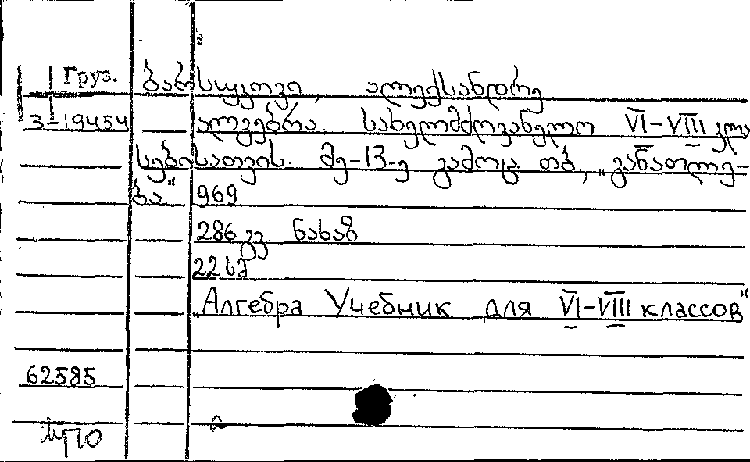 Груз. ბარსუკოვი, ალექსანდრე
3-19454 ალგებრა. სახელმძღვანელო VI-VIII კლა
სებისათვის. მე-13-ე გამოცა თბ, „განათლე-
ბა“ 969
286 გვ ნახაზ
22 სმ
Алгебра Учебник для VI-VIII классов"
62585